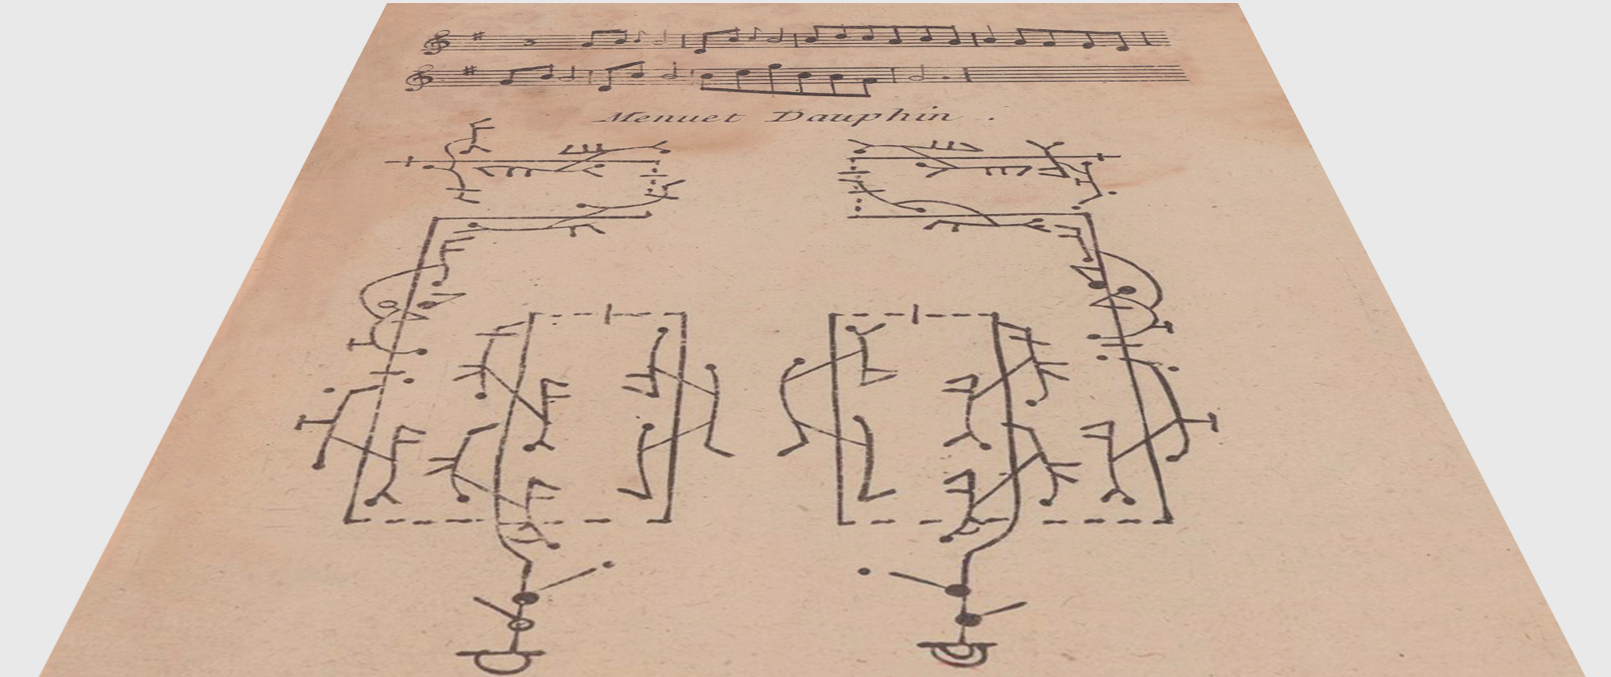 Menuet Dauphin .